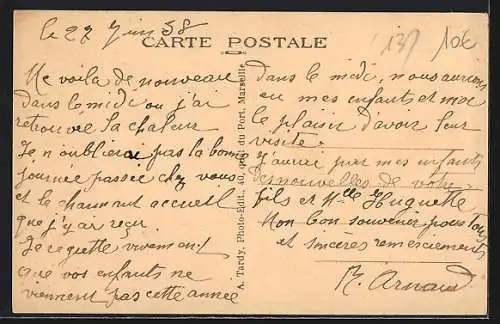 le 27 Juin 38
CARTE POSTALE
137
10€
Me voila de nouveau
dans le midi ou j'ai
retrouvée la chaleur
Je n'oublierai pas la bonne
journee passée chez vous
et le charmant accueil
que j'y ai reçu.
Je regrette vivement
que vos enfants ne
viennent pas cette année
A. Tardy, Photo-Edit., 40, Quai du Port, Marseille
dans le midi, nous aurions
eu mes enfants et moi
le plaisir d'avoir leur
visite.
J'aurai par mes enfants
des nouvelles de votre
fils et Mlle Huguette
Mon bon souvenir pour tous
et sincères remerciements
R. Arnaud